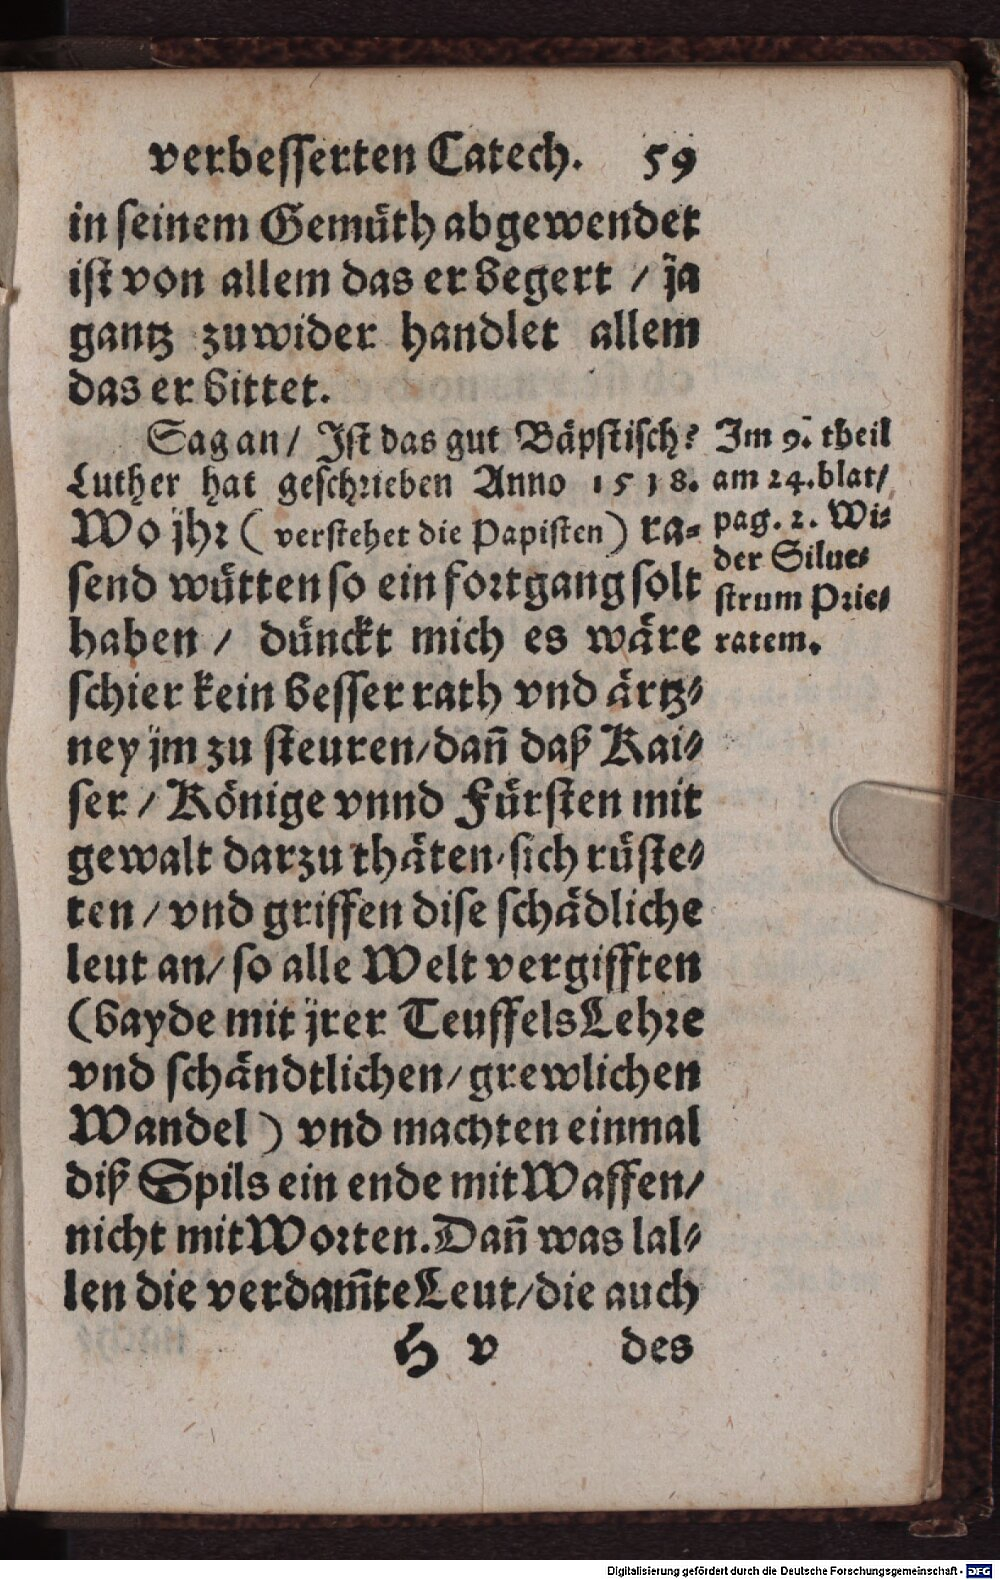 verbesserten Catech. 59
in seinem Gemüth abgewendet
ist von allem das er begert / ja
gantz zuwider handlet allem
das er bittet.
Sag an / Ist das gut Bäpstisch?
Luther hat geschrieben Anno 1518.
Wo jhr ( verstehet die Papisten ) ra-
send wütten so ein fortgang solt
haben / dünckt mich es wäre
schier kein besser rath vnd ärtz-
ney jm zu steuren / dañ daß Kai-
ser / Könige vnnd Fürsten mit
gewalt darzu thäten / sich rüste-
ten / vnd griffen dise schädliche
leut an / so alle Welt vergifften
(bayde mit jrer Teuffels Lehre
vnd schändtlichen / grewlichen
Wandel ) vnd machten einmal
diß Spils ein ende mit Waffen /
nicht mit Worten. Dañ was lal-
len die verdam̃te Leut / die auch
H v des
Im 9. theil
am 24. blat /
pag. 2. Wi-
der Silue-
strum Prie-
ratem.
Digitalisierung gefördert durch die Deutsche Forschungsgemeinschaft - DFG